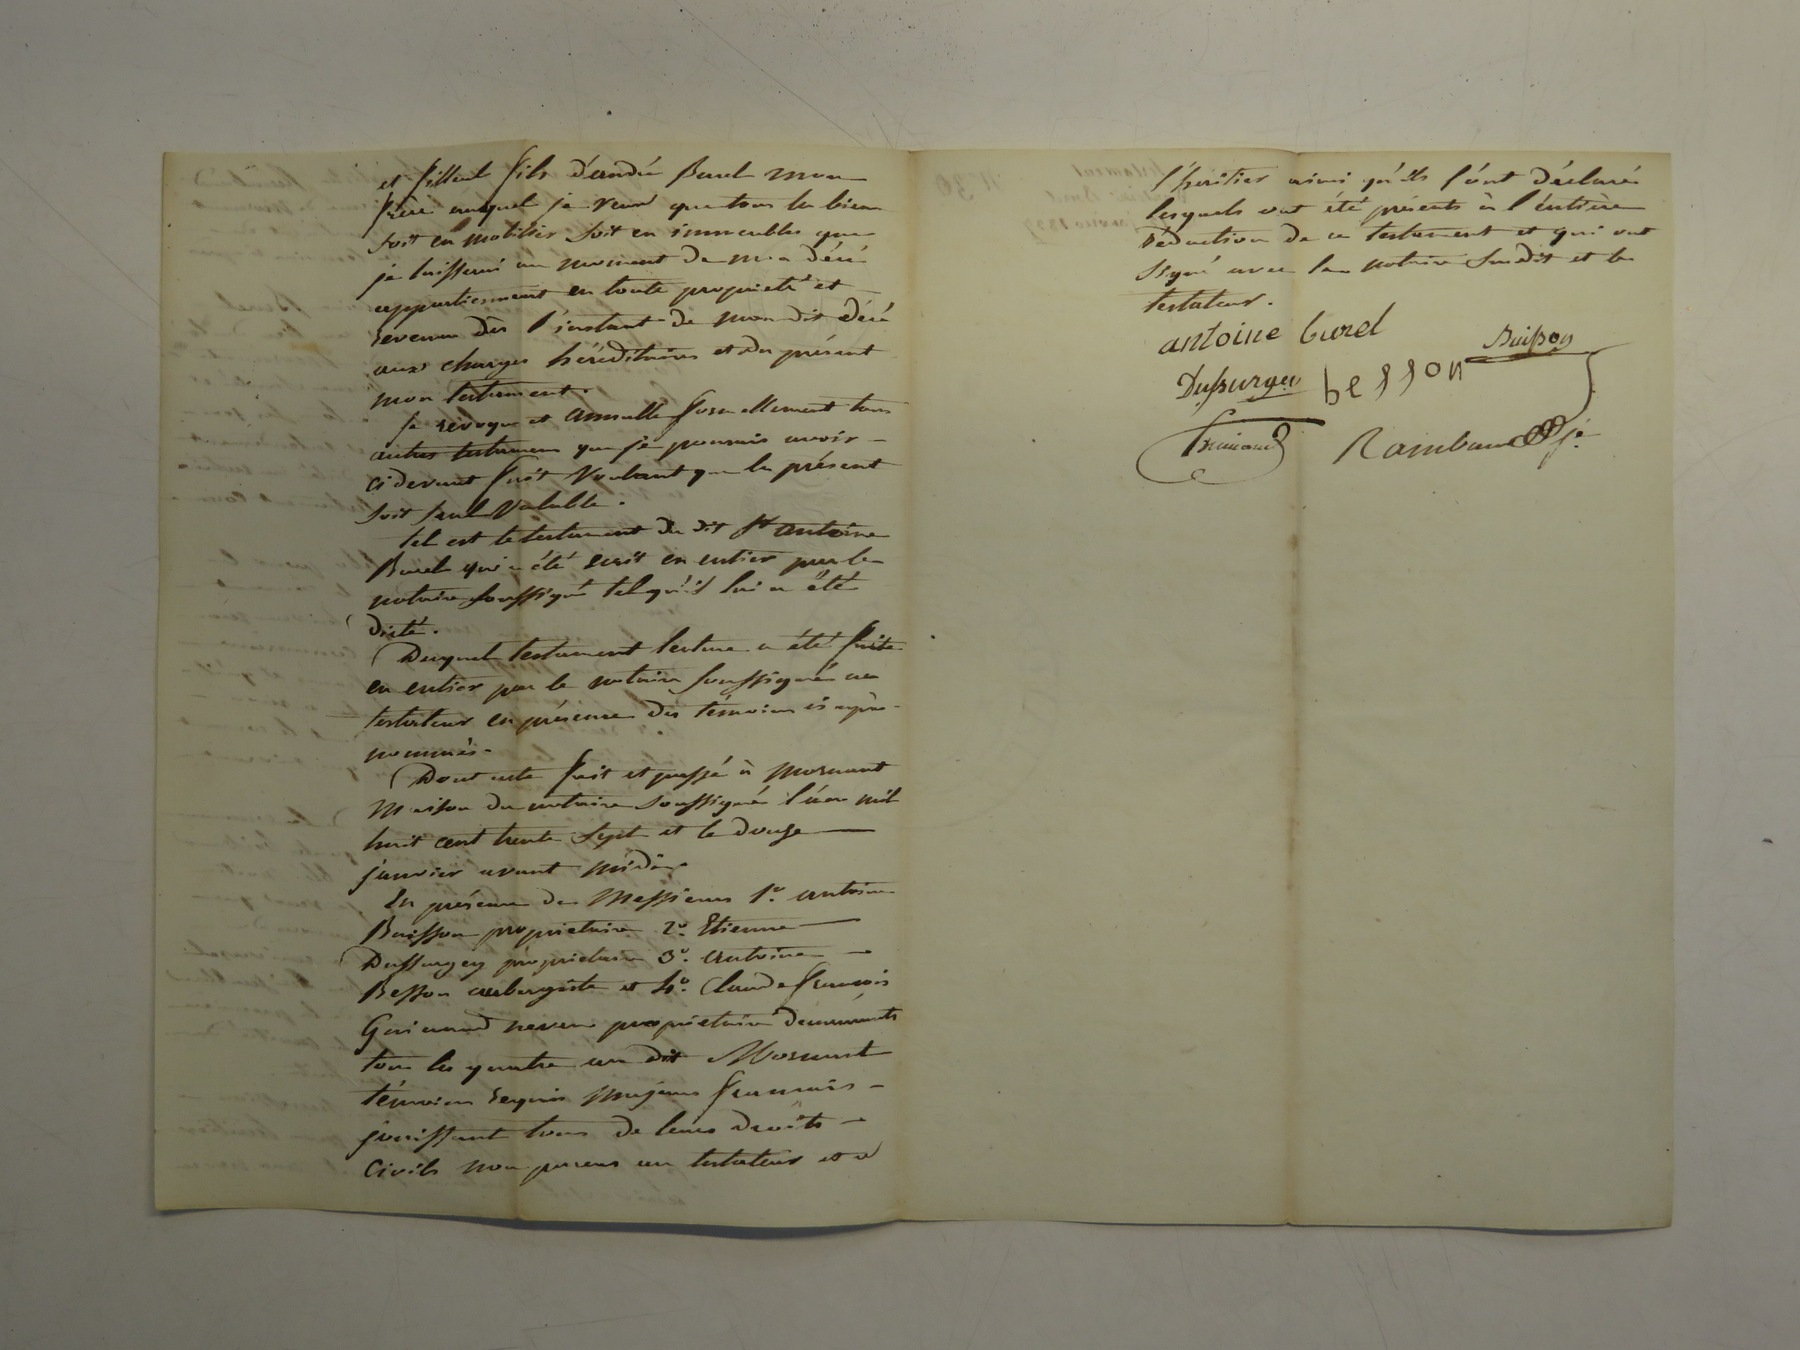 et filleul fils d'andré Burel mon
frère auquel je veux que tous les biens
soit en mobilier soit en immeubles que
je laisserai au moment de mon décé
appartiennent en toute propriété et
revenu dès l'instant de mon dit décé
aux charges héréditaires et du présent
mon testament.
Je révoque et annulle formellement tous
autres testamens que je pourrais avoir
ci devant fait Voulant que le présent
soit seul Valable.
tel est le testament du dit Sr antoine
Burel qui a été écrit en entier par le
notaire soussigné tel qu'il lui a été
dicté.
Duquel testament lecture a été faite
en entier par le notaire soussigné au
testateur en présence des témoins ci après
nommés.
Dont acte fait et passé à Mornant
Maison du notaire soussigné l'an mil
huit cent trente sept et le douze
janvier avant midi.
En présence de Messieurs 1º. antoine
Buisson propriétaire 2º. Etienne
Dussurgey propriétaire 3º. antoine
Besson aubergiste et 4º. Claude françois
Guinand neveu propriétaire demeurants
tous les quatre au dit Mornant
témoins requis majeurs français
jouissant tous de leurs droits
Civils non parens au testateur et a
l'héritier ainsi qu'ils l'ont déclaré
lesquels ont été présents à l'entière
rédaction de ce testament et qui ont
signé avec le notaire susdit et le
testateur.
antoine burel
Buisson
Dussurgey besson
Guinand Rambaud